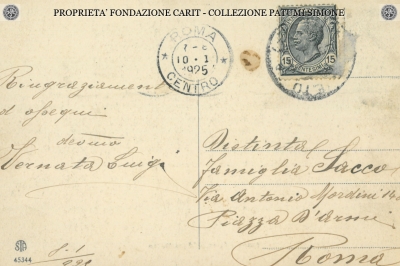 PROPRIETA' FONDAZIONE CARIT - COLLEZIONE PATUMI SIMONE
ROMA
10·1
1925
CENTRO
15 15
Ringraziamenti
ed ossequi
devmo
Vernata Luigi
Distinta
famiglia Sacco
Via Antonio Mordini
Piazza D'Armi
Roma
45344